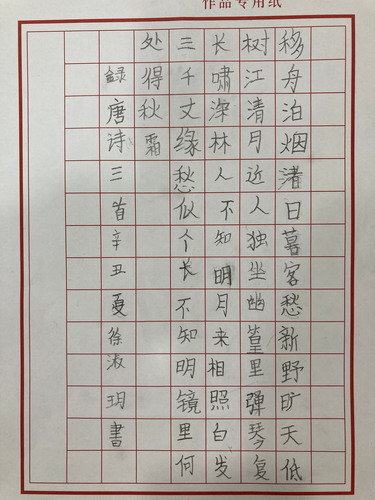 作品专用纸
移舟泊烟渚日暮客愁新野旷天低
树江清月近人独坐幽篁里弹琴复
长啸深林人不知明月来相照白发
三千丈缘愁似个长不知明镜里何
处得秋霜
録唐诗三首辛丑夏徐淑玥書